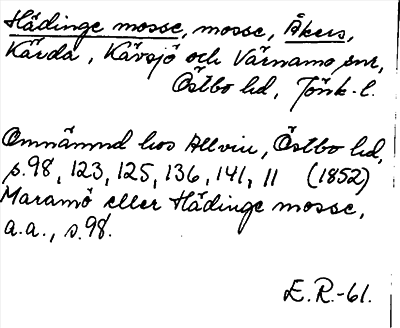 Hädinge mosse, mosse, Åkers,
Kärda, Kävsjö och Värnamo snr,
Östbo hd, Jönk. l.
Omnämnd hos Allvin, Östbo hd,
s. 98, 123, 125, 136, 141, 11 (1852)
Maramö eller Hädinge mosse,
a.a., s. 98.
E.R.-61.